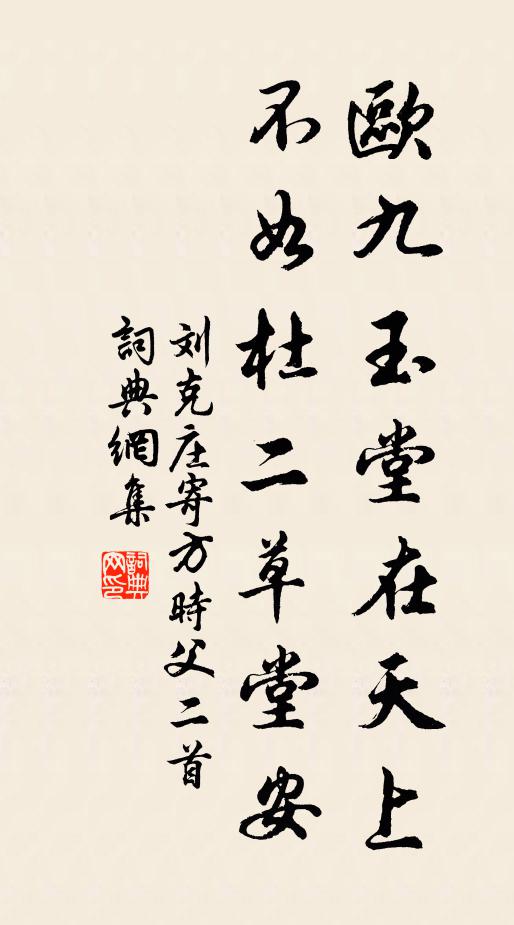 歐九玉堂在天上
不如杜二草堂安
刘克庄寄方時父二首
詞典網集
詞典网印